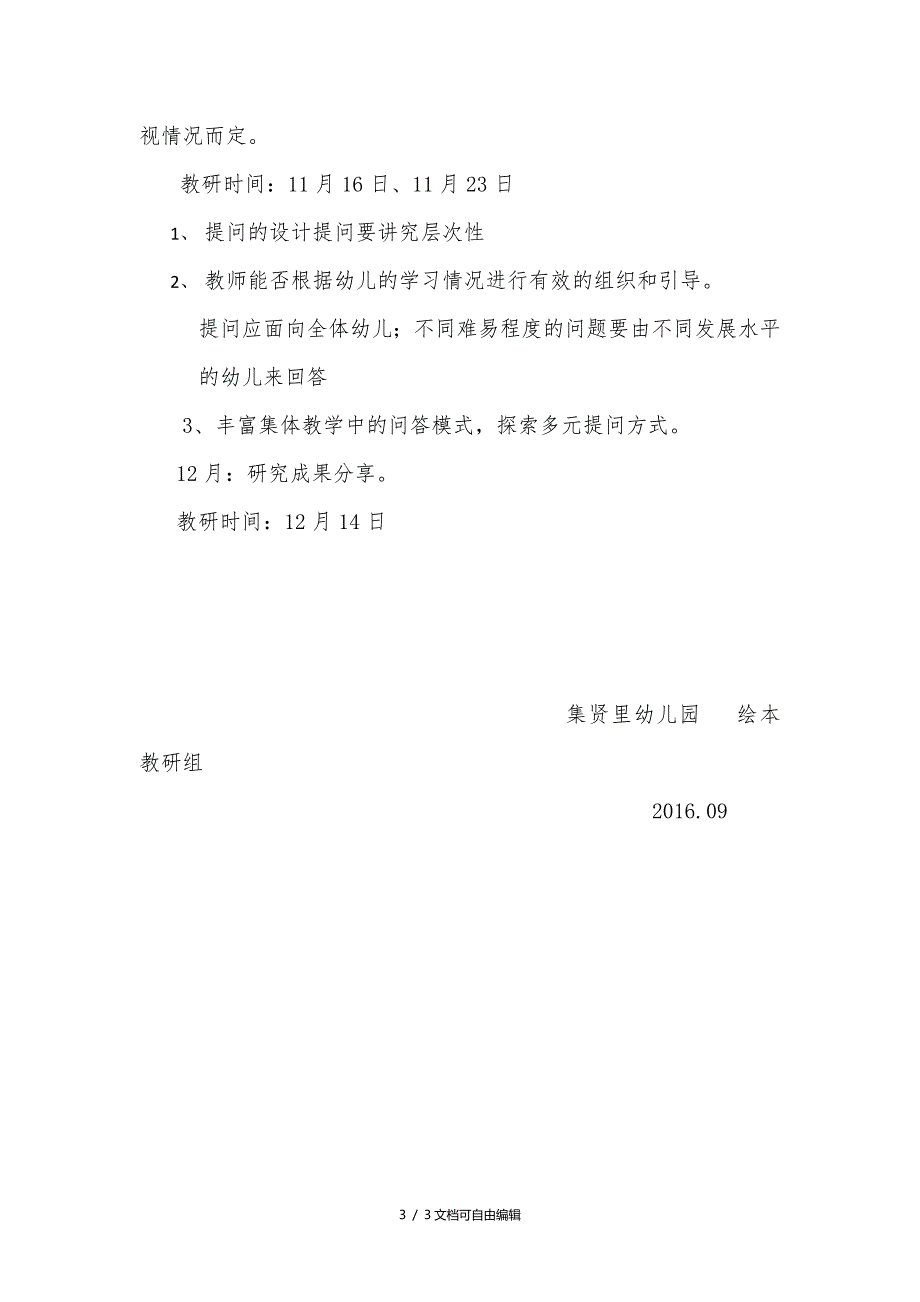 视情况而定。
教研时间：11月16日、11月23日
1、 提问的设计提问要讲究层次性
2、 教师能否根据幼儿的学习情况进行有效的组织和引导。
提问应面向全体幼儿；不同难易程度的问题要由不同发展水平
的幼儿来回答
3、丰富集体教学中的问答模式，探索多元提问方式。
12月：研究成果分享。
教研时间：12月14日
集贤里幼儿园 绘本
教研组
2016.09
3 / 3文档可自由编辑